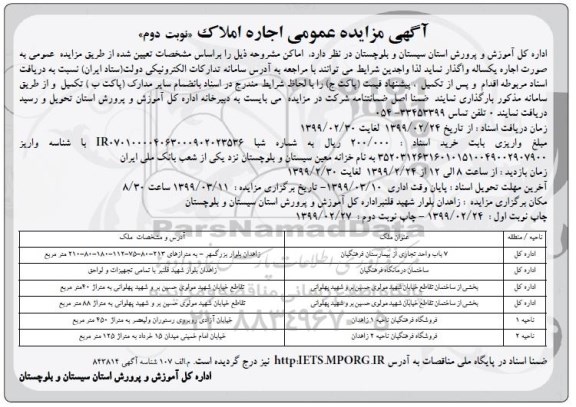 آگهی مزایده عمومی اجاره املاک «نوبت دوم»
اداره کل آموزش و پرورش استان سیستان و بلوچستان در نظر دارد، اماکن مشروحه ذیل را براساس مشخصات تعیین شده از طریق مزایده عمومی به
صورت اجاره یکساله واگذار نماید لذا واجدین شرایط می توانند با مراجعه به آدرس سامانه تدارکات الکترونیکی دولت(ستاد ایران) نسبت به دریافت
اسناد مربوطه اقدام و پس از تکمیل ، پیشنهاد قیمت (پاکت ج) را با لحاظ شرایط مندرج در اسناد بانضمام سایر مدارک (پاکت ب ) تکمیل و از طریق
سامانه مذکور بارگذاری نمایند ضمنا اصل ضمانتنامه شرکت در مزایده می بایست به دبیرخانه اداره کل آموزش و پرورش استان تحویل و رسید
دریافت نمایند - تلفن تماس ۳۳۴۵۳۳۹۹-۰۵۴
زمان دریافت اسناد : از تاریخ ۱۳۹۹/۰۲/۲۴ لغایت ۱۳۹۹/۰۲/۳۰
مبلغ واریزی بابت خرید اسناد : ۲۰۰/۰۰۰ ریال به شماره شبا IR-۷۰۱۰۰۰۰۴۰۶۳۰۰۰۹۰۲۰۲۳۵۳۶ با شناسه واریز
۳۵۲۰۳۱۲۶۳۱۶۰۱۰۱۵۱۰۰۴۹۰۰۲۹۰۷۹۰۰ به نام خزانه معین سیستان و بلوچستان نزد یکی از شعب بانک ملی ایران
زمان بازدید : از ساعت ۸ الی ۱۲ از ۱۳۹۹/۲/۲۴ لغایت ۱۳۹۹/۲/۳۰
آخرین مهلت تحویل اسناد : پایان وقت اداری ۱۳۹۹/۰۳/۱۰- تاریخ برگزاری مزایده : ۱۳۹۹/۰۳/۱۱ ساعت ۸/۳۰
مکان برگزاری مزایده : زاهدان بلوار شهید قلنبراداره کل آموزش و پرورش استان سیستان و بلوچستان
چاپ نوبت اول : ۱۳۹۹/۰۲/۲۴ – چاپ نوبت دوم : ۱۳۹۹/۰۲/۲۷
ناحیه / منطقه عنوان ملک آدرس و مشخصات ملک
اداره کل ۷ باب واحد تجاری از بیمارستان فرهنگیان زاهدان بلوار بزرگمهر - به متراژهای ۲۱۳-۸۰-۷۵-۱۱۲-۸۰-۱۸۰-۲۱۰ متر مربع
اداره کل ساختمان درمانگاه فرهنگیان زاهدان بلوار شهید قلنبر با تمامی تجهیزات و لواحق
اداره کل بخشی از ساختمان تقاطع خیابان شهید مولوی حسین بر و شهید پهلوانی تقاطع خیابان شهید مولوی حسین بر و شهید پهلوانی به متراژ ۴۰متر مربع
اداره کل بخشی از ساختمان تقاطع خیابان شهید مولوی حسین بر و شهید پهلوانی تقاطع خیابان شهید مولوی حسین بر و شهید پهلوانی به متراژ ۸۸ متر مربع
ناحیه ۱ فروشگاه فرهنگیان ناحیه ۱ زاهدان خیابان آزادی روبروی رستوران ولیعصر به متراژ ۴۵۰ متر مربع
ناحیه ۲ فروشگاه فرهنگیان ناحیه ۲ زاهدان خیابان امام خمینی میدان ۱۵ خرداد به متراژ ۱۲۵ متر مربع
ضمنا اسناد در پایگاه ملی مناقصات به آدرس http:IETS.MPORG.IR نیز درج گردیده است. م.الف ۱۰۷ شناسه آگهی ۸۴۳۸۱۴
اداره کل آموزش و پرورش استان سیستان و بلوچستان